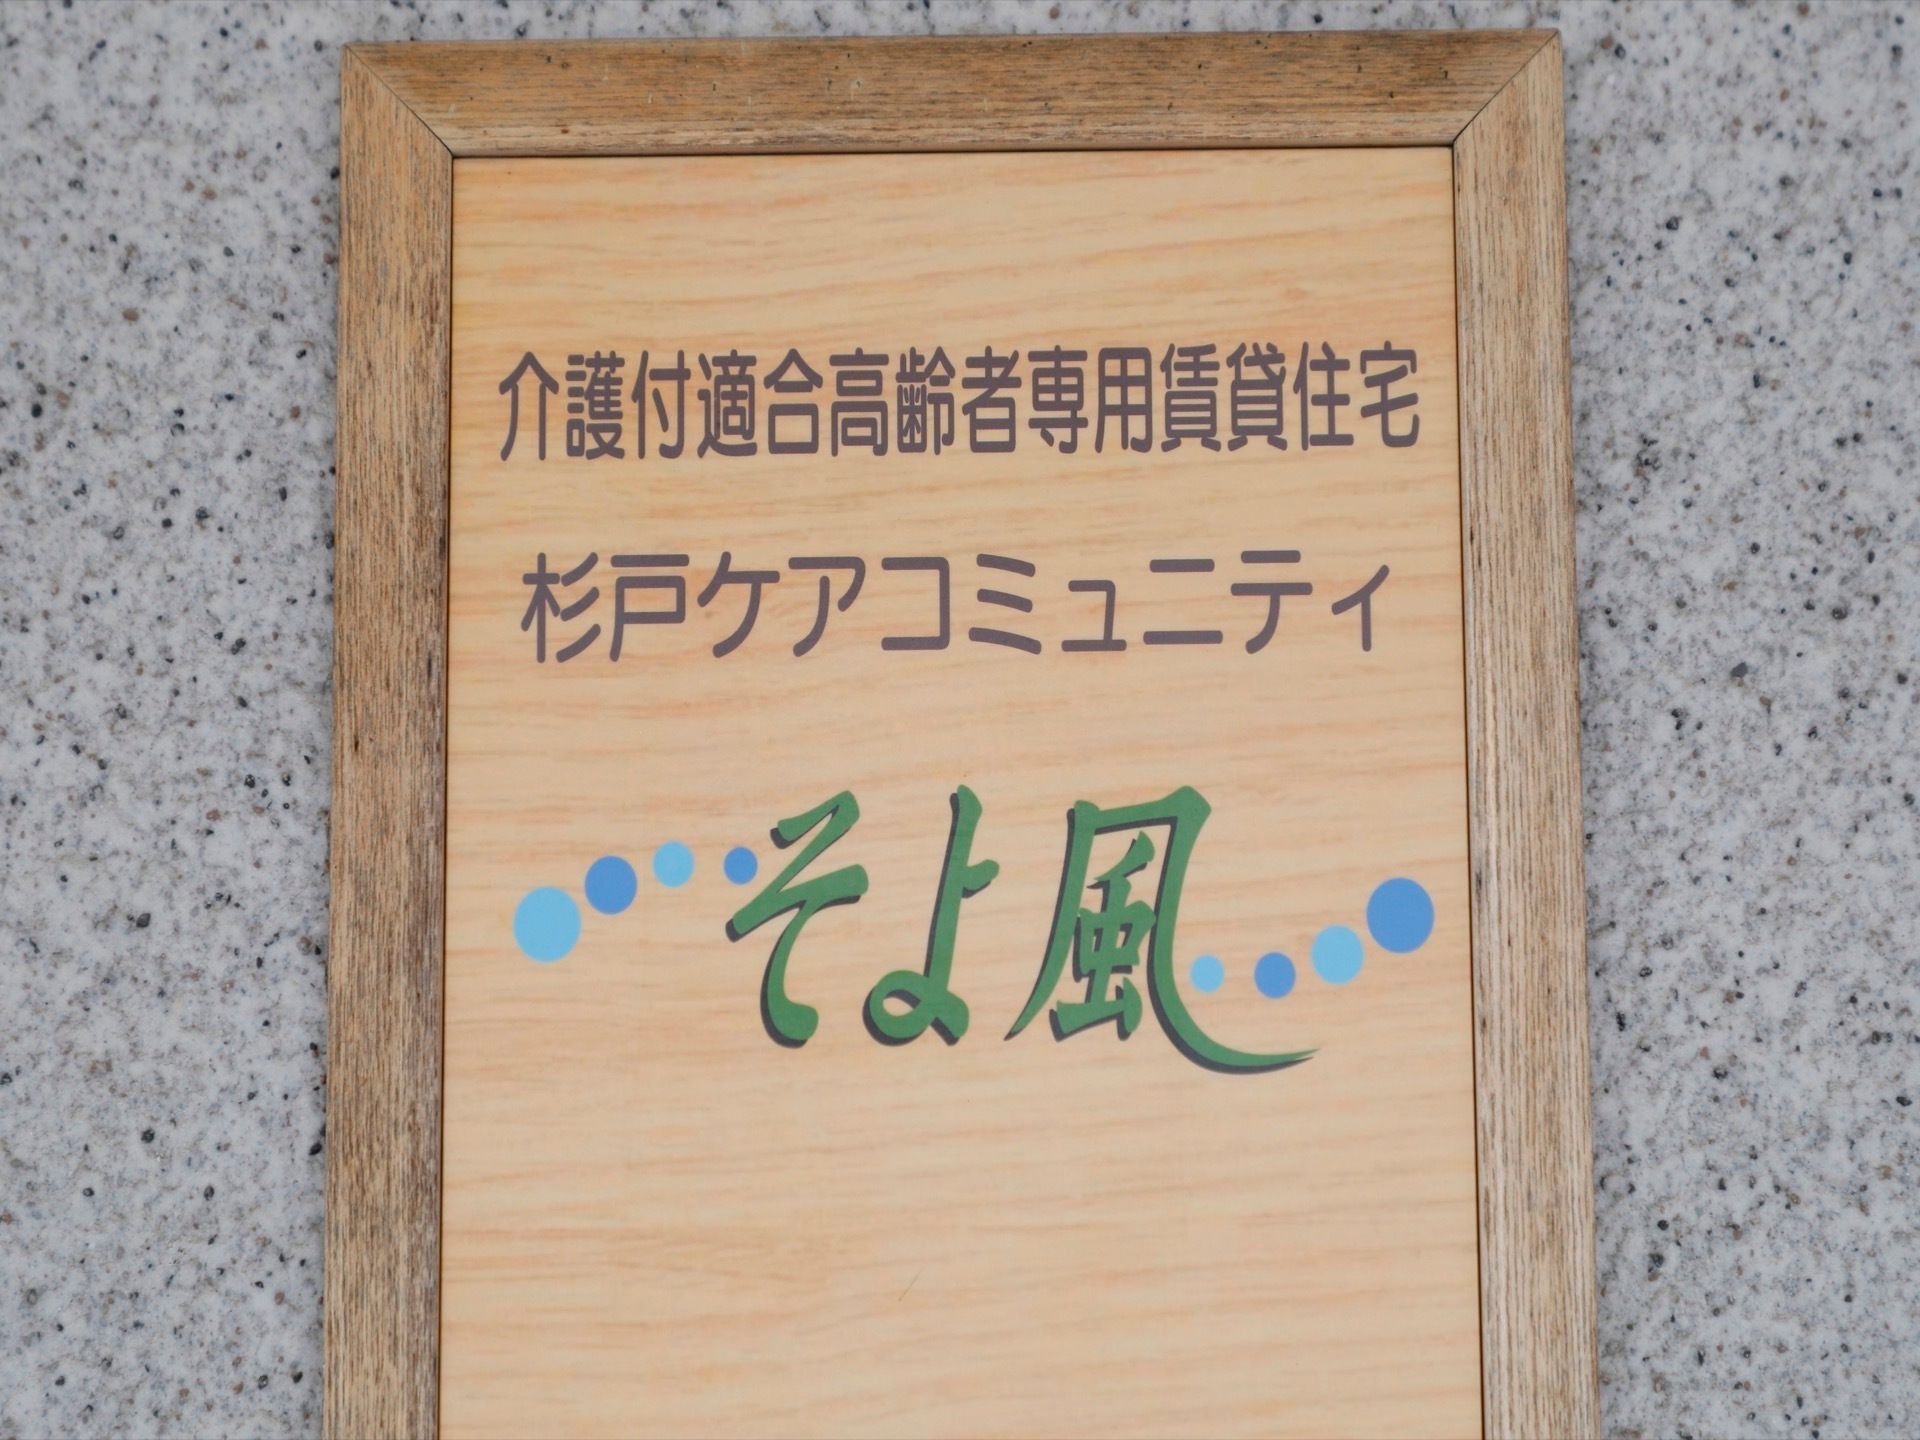 介護付適合高齢者専用賃貸住宅
杉戸ケアコミュニティ
そよ風